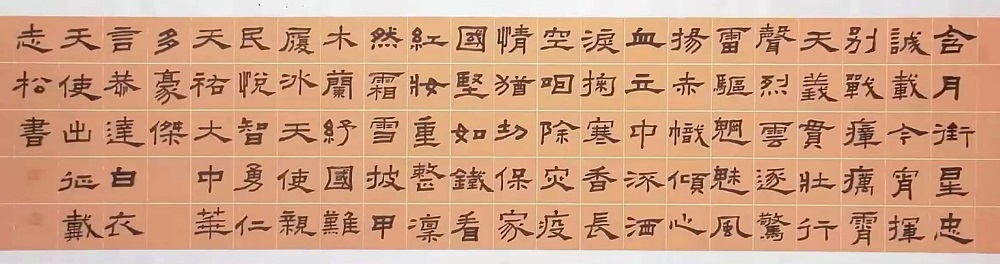 含月街星忠
誠載今宵揮
別戰瘴癘霄
天義貫壯行
聲烈雲逐驚
雷驅魍魅風
揚赤幟傾心
血立中洒
淚掬寒香長
空咽除災疫
情猶切保家
國堅如鐵看
紅妝重整凜
然霜雪披甲
木蘭紓國難
履冰天使親
民悅智勇仁
天祐大中華
多豪傑
言恭達白衣
天使出征戴
志松書